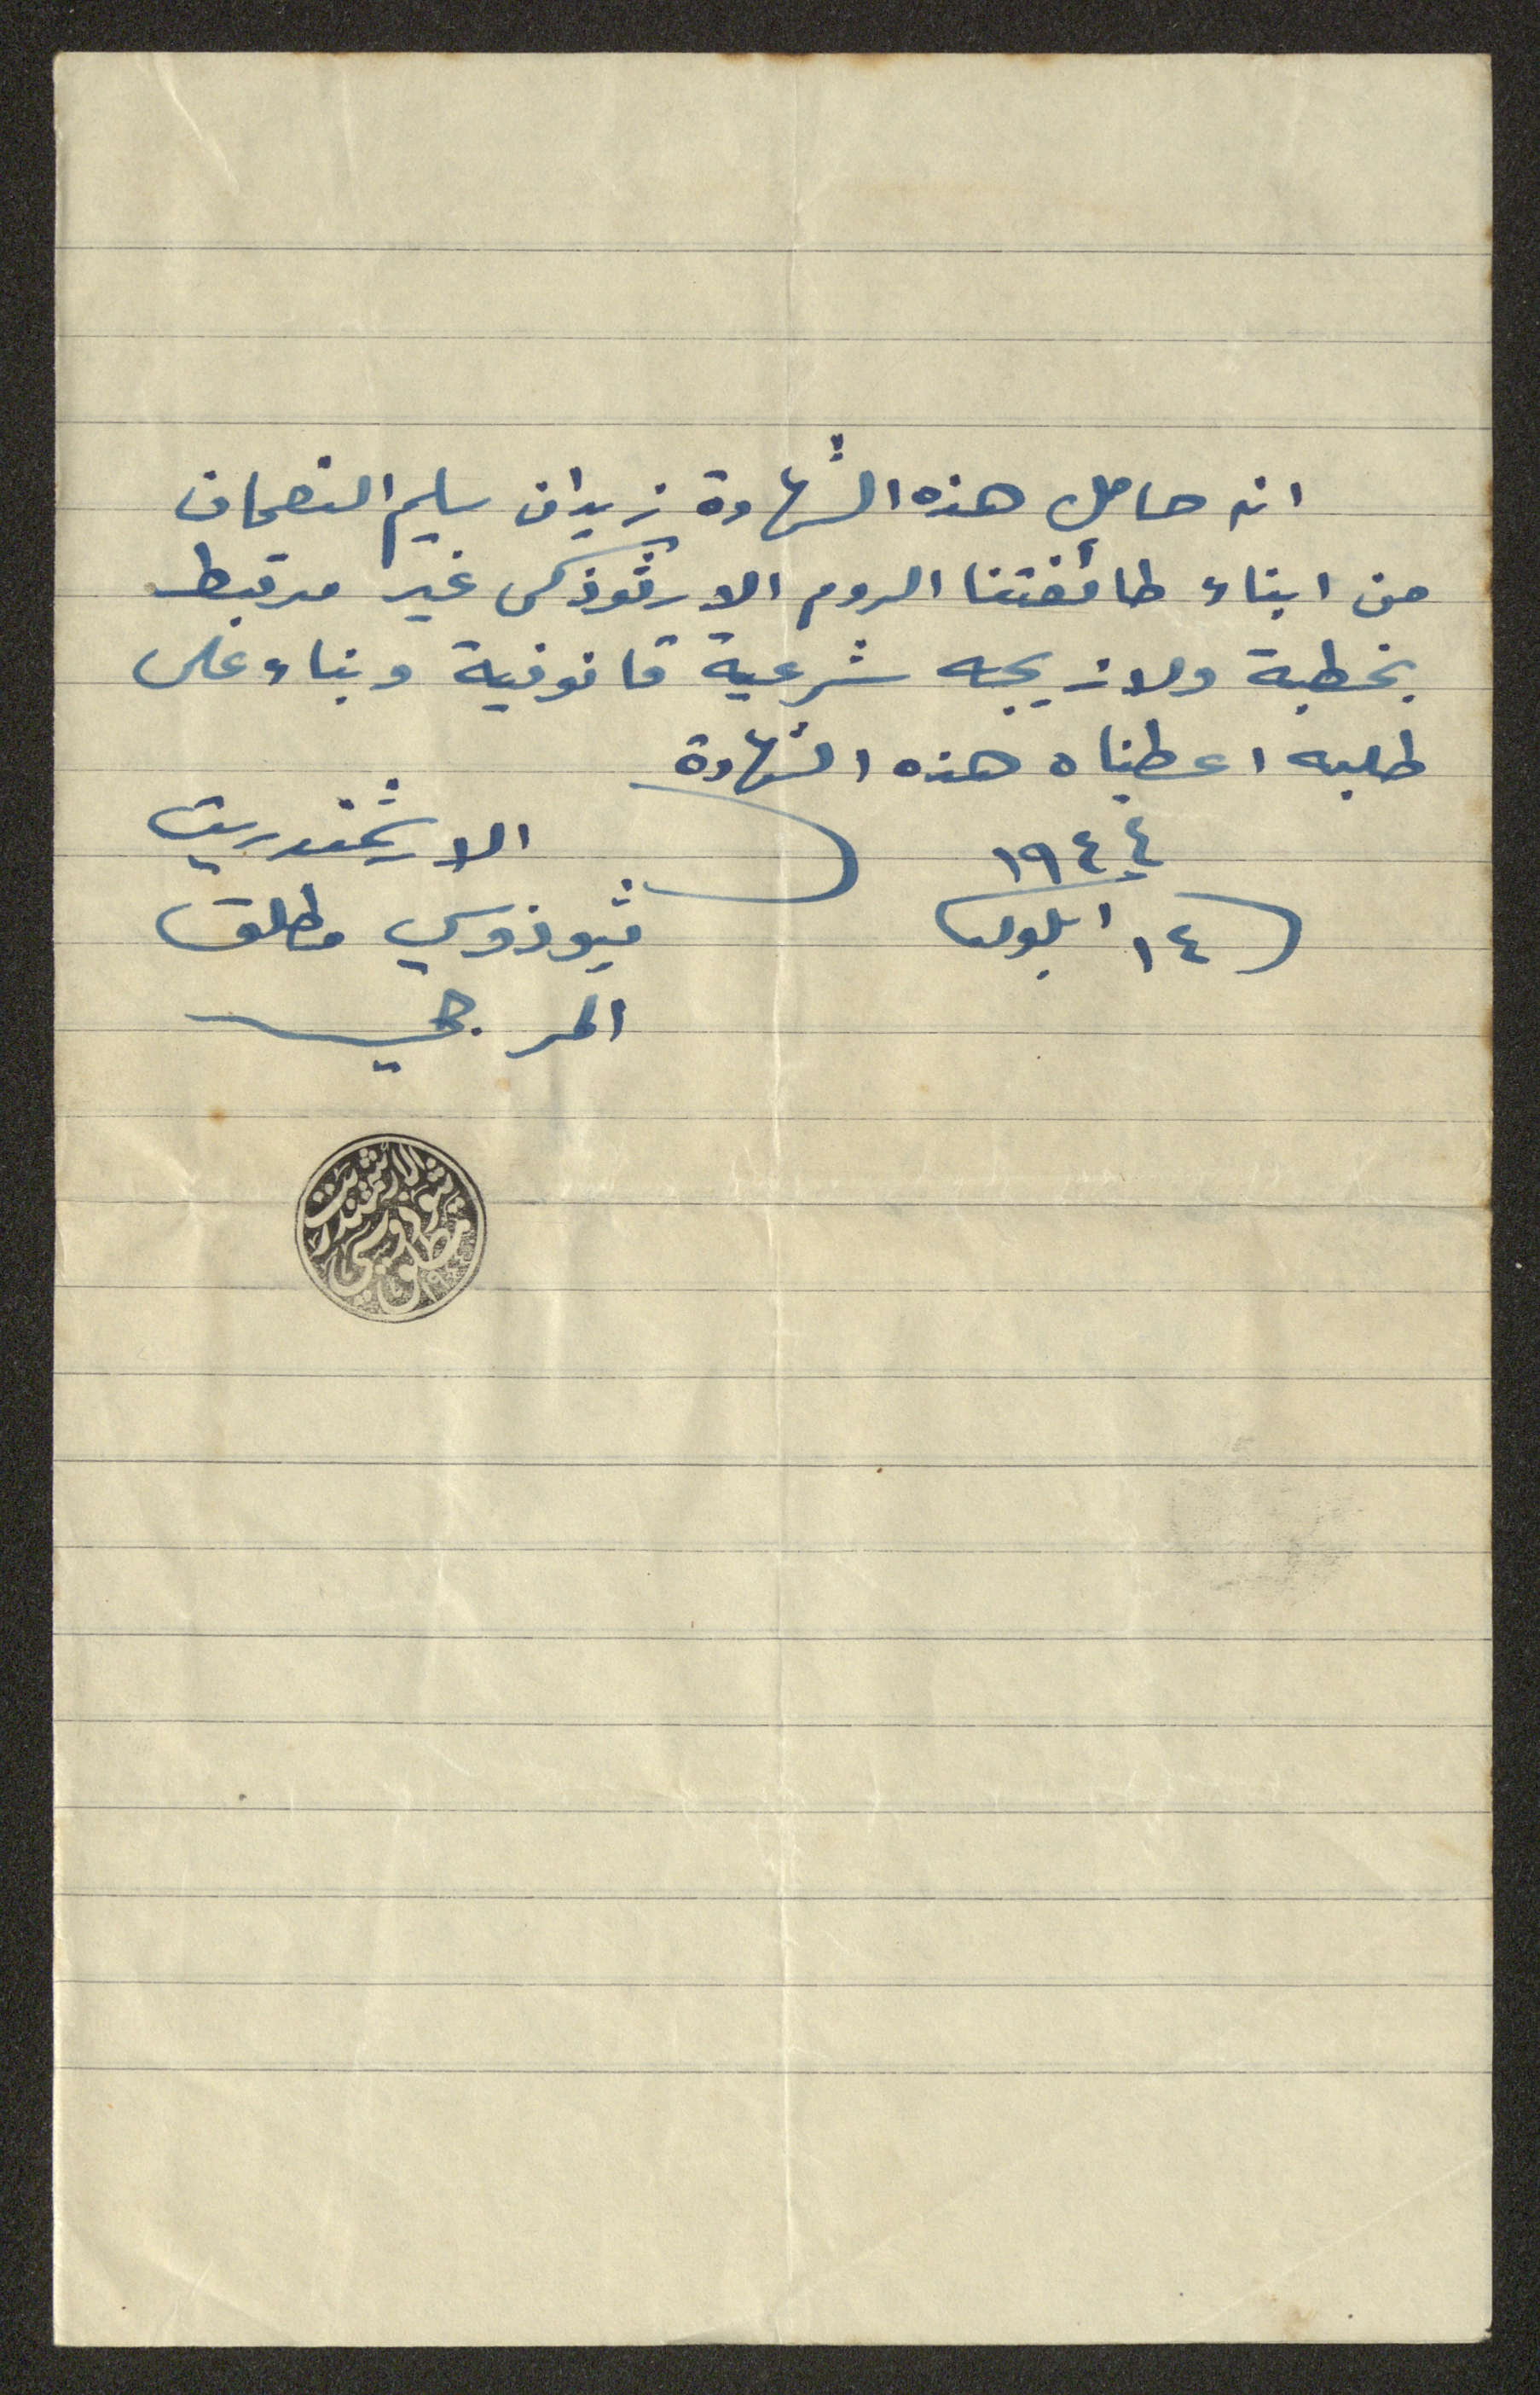 انه حامل هذه الشهادة زيدان سليم النعمان
من ابناء طائفتنا الروم الارثوذكس غير مرتبط
بخطبة ولا زيجه شرعية قانونية وبناء على
طلبه اعطيناه هذه الشهادة
١٤ ايلول ١٩٤٤
الارشمندريت
ثيوذوسي مطلق
الارشمندريت
ثيوذوسي
مطلق